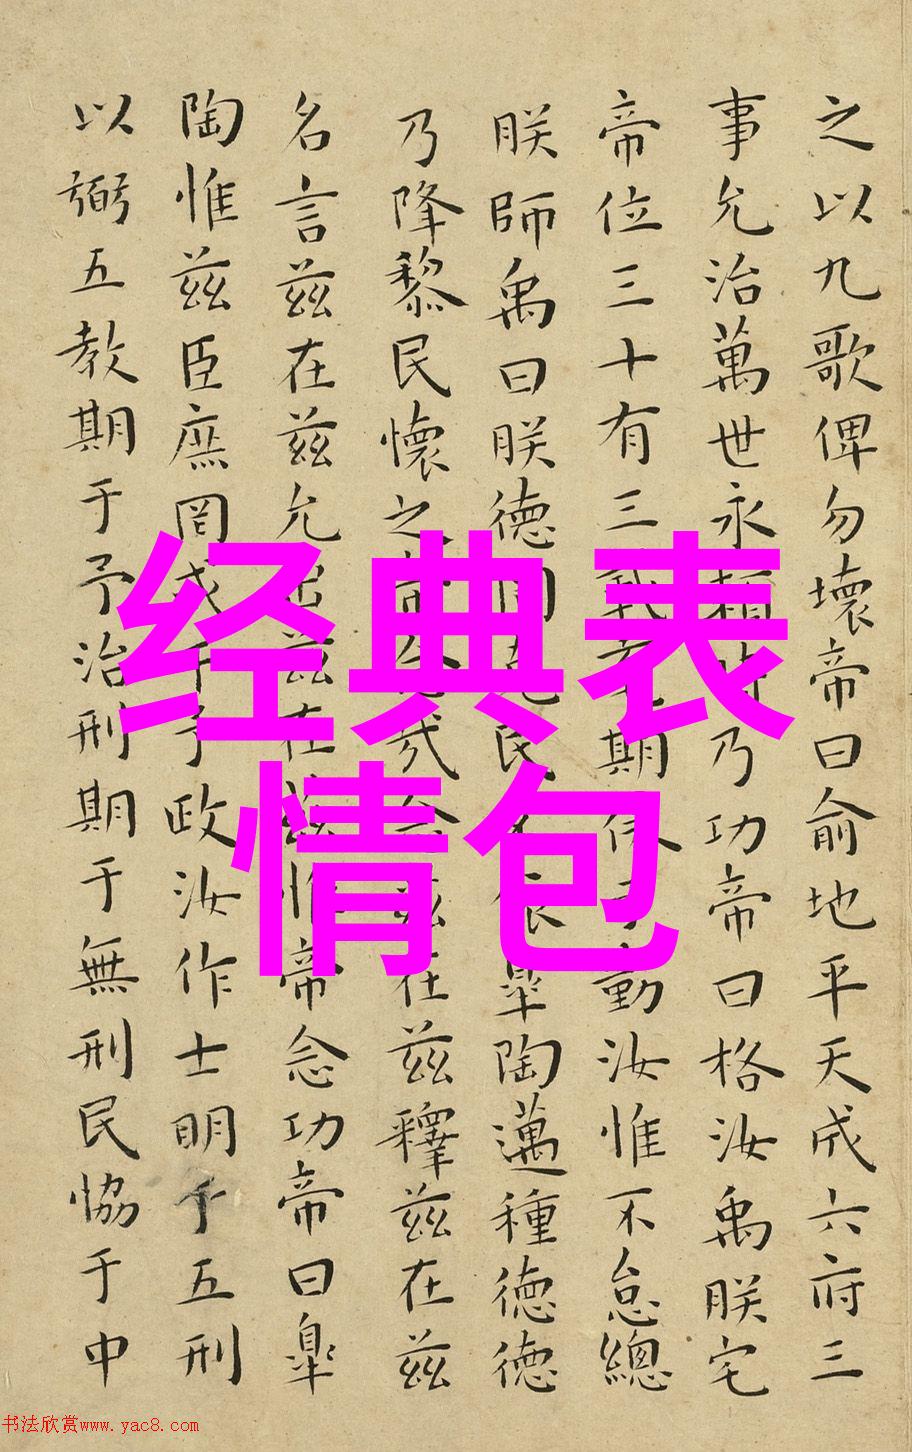 之以九歌俾勿壞帝曰俞地平天成六府三
事允治萬世永賴時乃功帝曰格汝禹朕宅
帝位三十有三載期于勤汝惟不怠總
朕師禹曰朕德罔克民不依皐陶邁種德德
乃降黎民懷之帝念哉念兹在兹釋兹在兹
名言兹在兹允出兹在兹惟帝念功帝曰皐
陶惟兹臣庶罔或干予政汝作士明于五刑
以弼五教期于予治刑期于無刑民協于中
经典表
情包
书法欣赏www.yac8.com